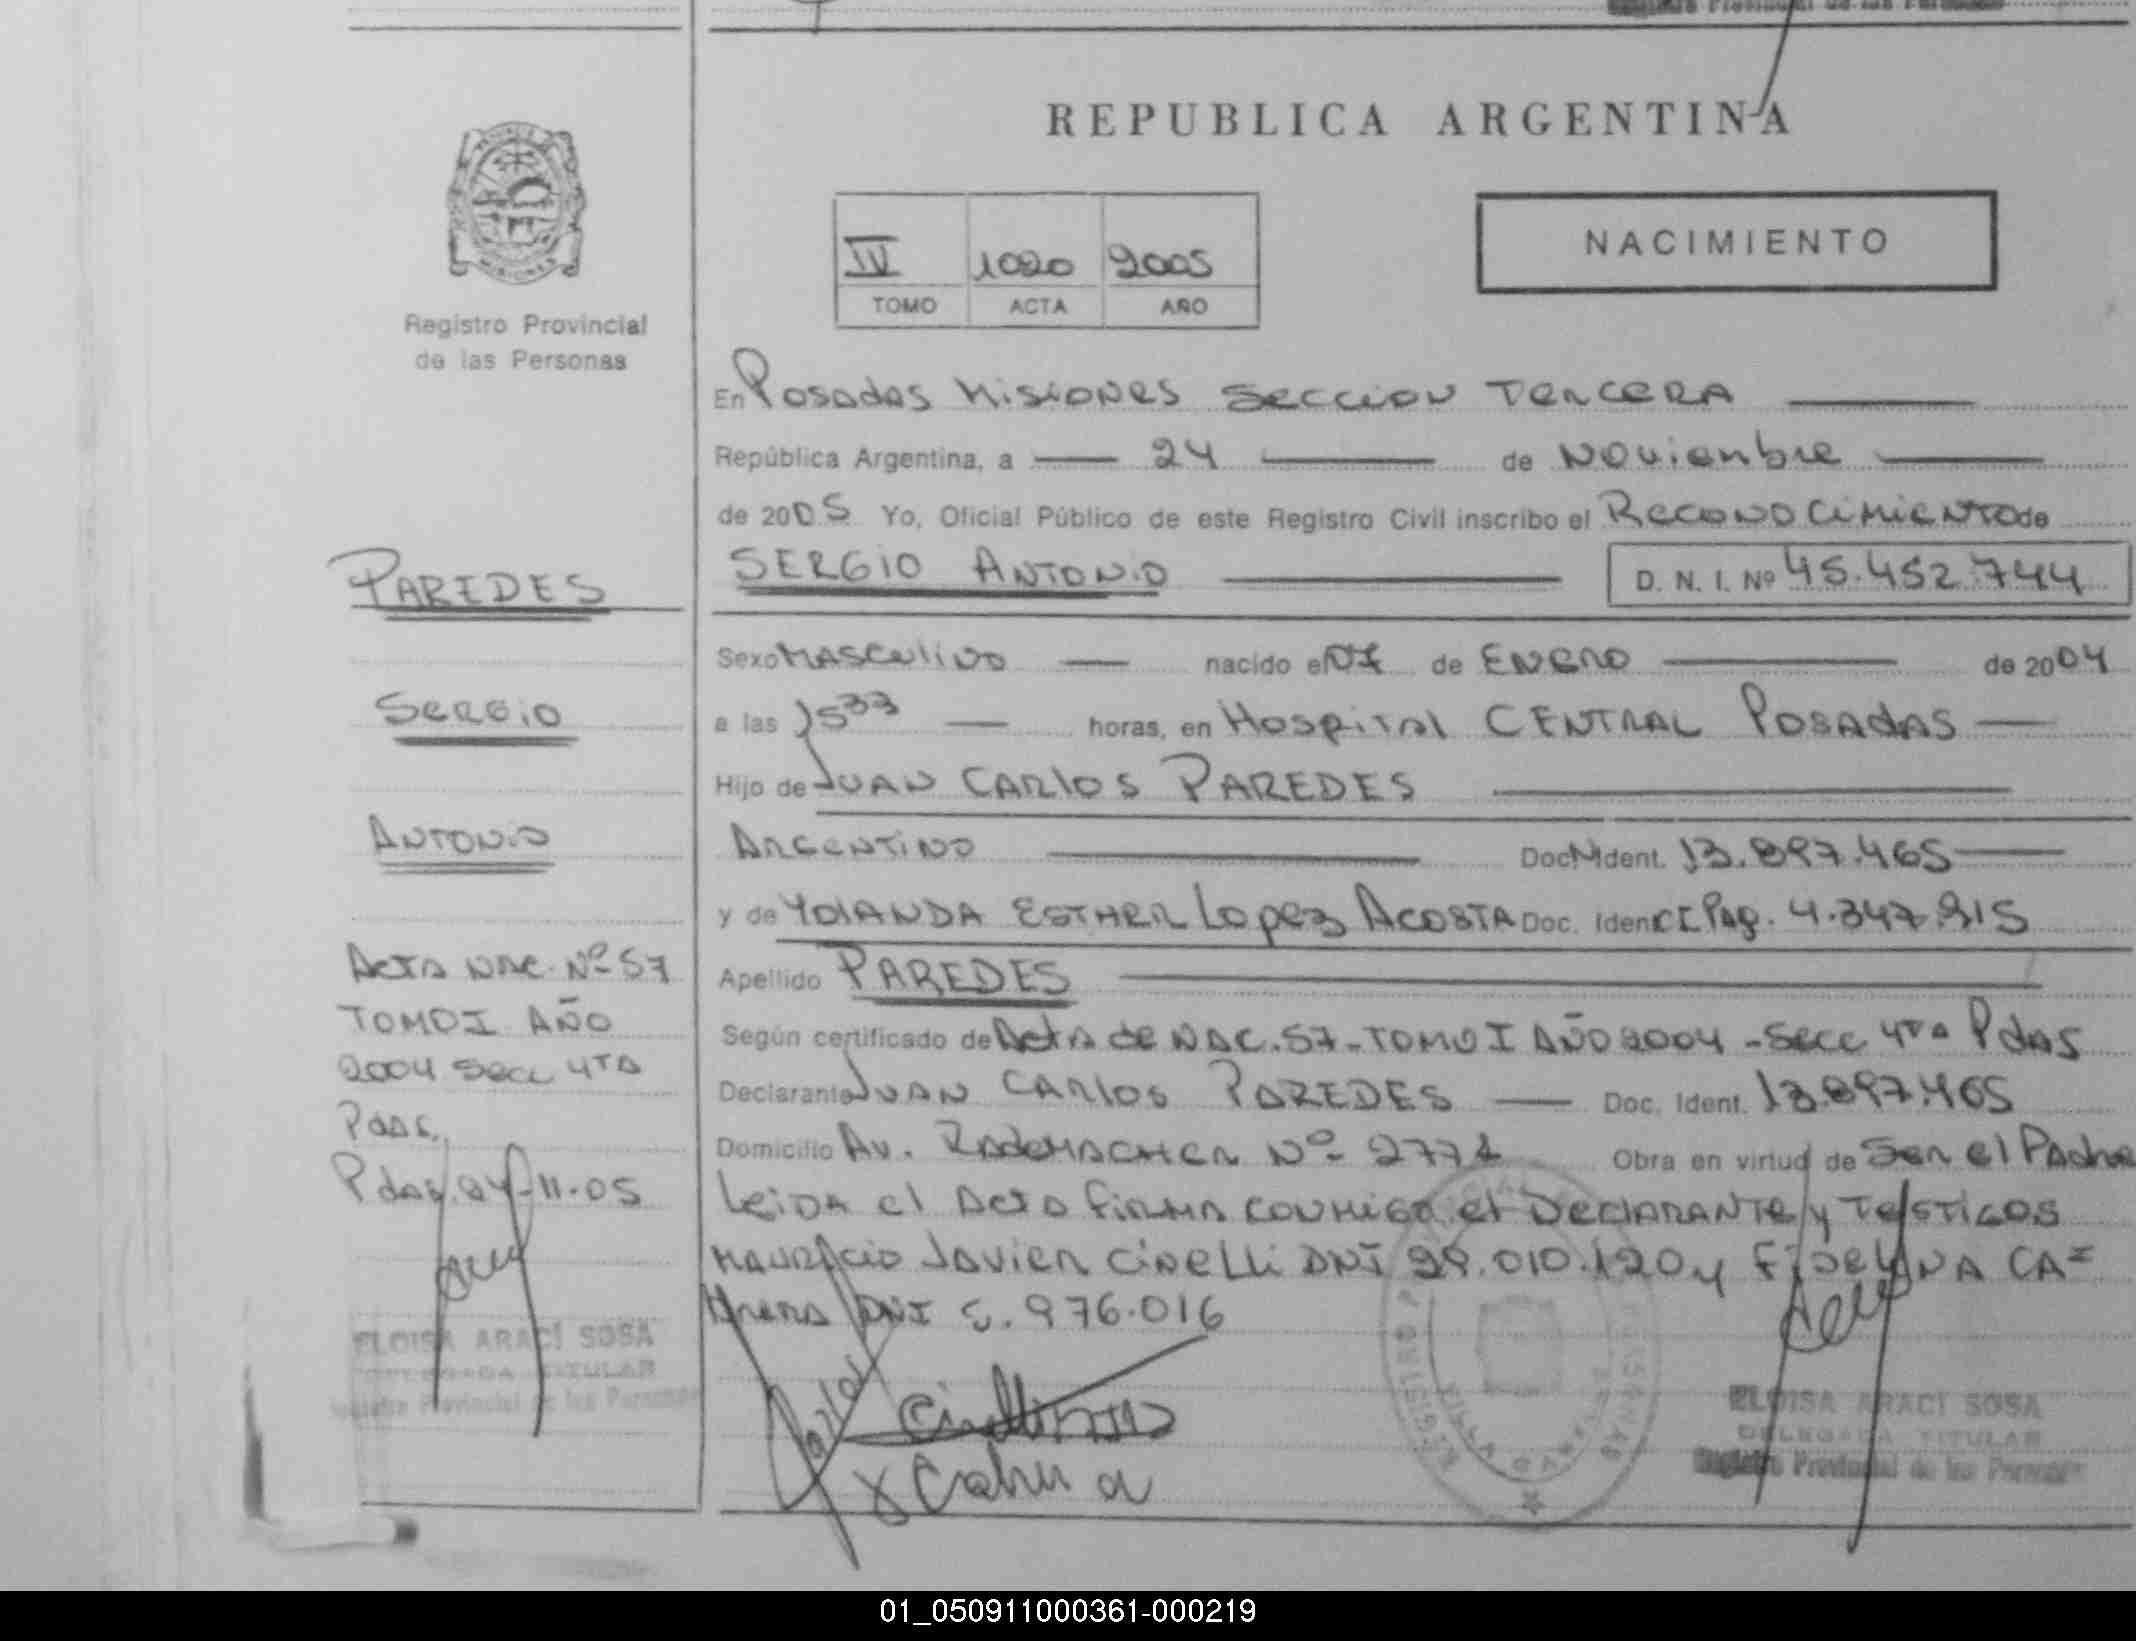 REPUBLICA ARGENTINA
IV 1020 2005
TOMO ACTA AÑO
NACIMIENTO
Registro Provincial
de las Personas
PAREDES
SERGIO
ANTONIO
ACTA NAC. Nº 57
TOMO I AÑO
2004 Secc 4TA
Pdas.
Pdas. 24-11-05
ELOISA ARACÍ SOSA
DELEGADA TITULAR
Registro Provincial de las Personas
En Posadas Misiones Seccion Tercera
República Argentina, a 24 de Noviembre
de 2005 Yo, Oficial Público de este Registro Civil inscribo el Reconocimiento de
SERGIO ANTONIO D. N. I. Nº 45.452.744
Sexo Masculino nacido el 07 de Enero de 2004
a las 15 33 horas, en Hospital CENTRAL POSADAS
Hijo de JUAN CARLOS PAREDES
Argentino Doc. Ident. 13.897.465
y de YOLANDA ESTHER Lopez ACOSTA Doc. Iden CI Pag. 4.347.915
Apellido PAREDES
Según certificado de Acta de NAC. 57-TOMO I AÑO 2004 - Secc 4TA Pdas
Declarante JUAN CARLOS PAREDES Doc. Ident. 13.897.465
Domicilio Av. RADEMACHER Nº 2771 Obra en virtud de Ser el Padre
Leida el Acta firma conmigo el Declarante y Testigos
Mauricio Javier Cinelli DNI 29.010.120 y FIDELINA CA=
brera DNI 5.976.016
Cabrera
REGISTRO PROVINCIAL DE LAS PERSONAS
ELOISA ARACÍ SOSA
DELEGADA TITULAR
Registro Provincial de las Personas
01_050911000361-000219